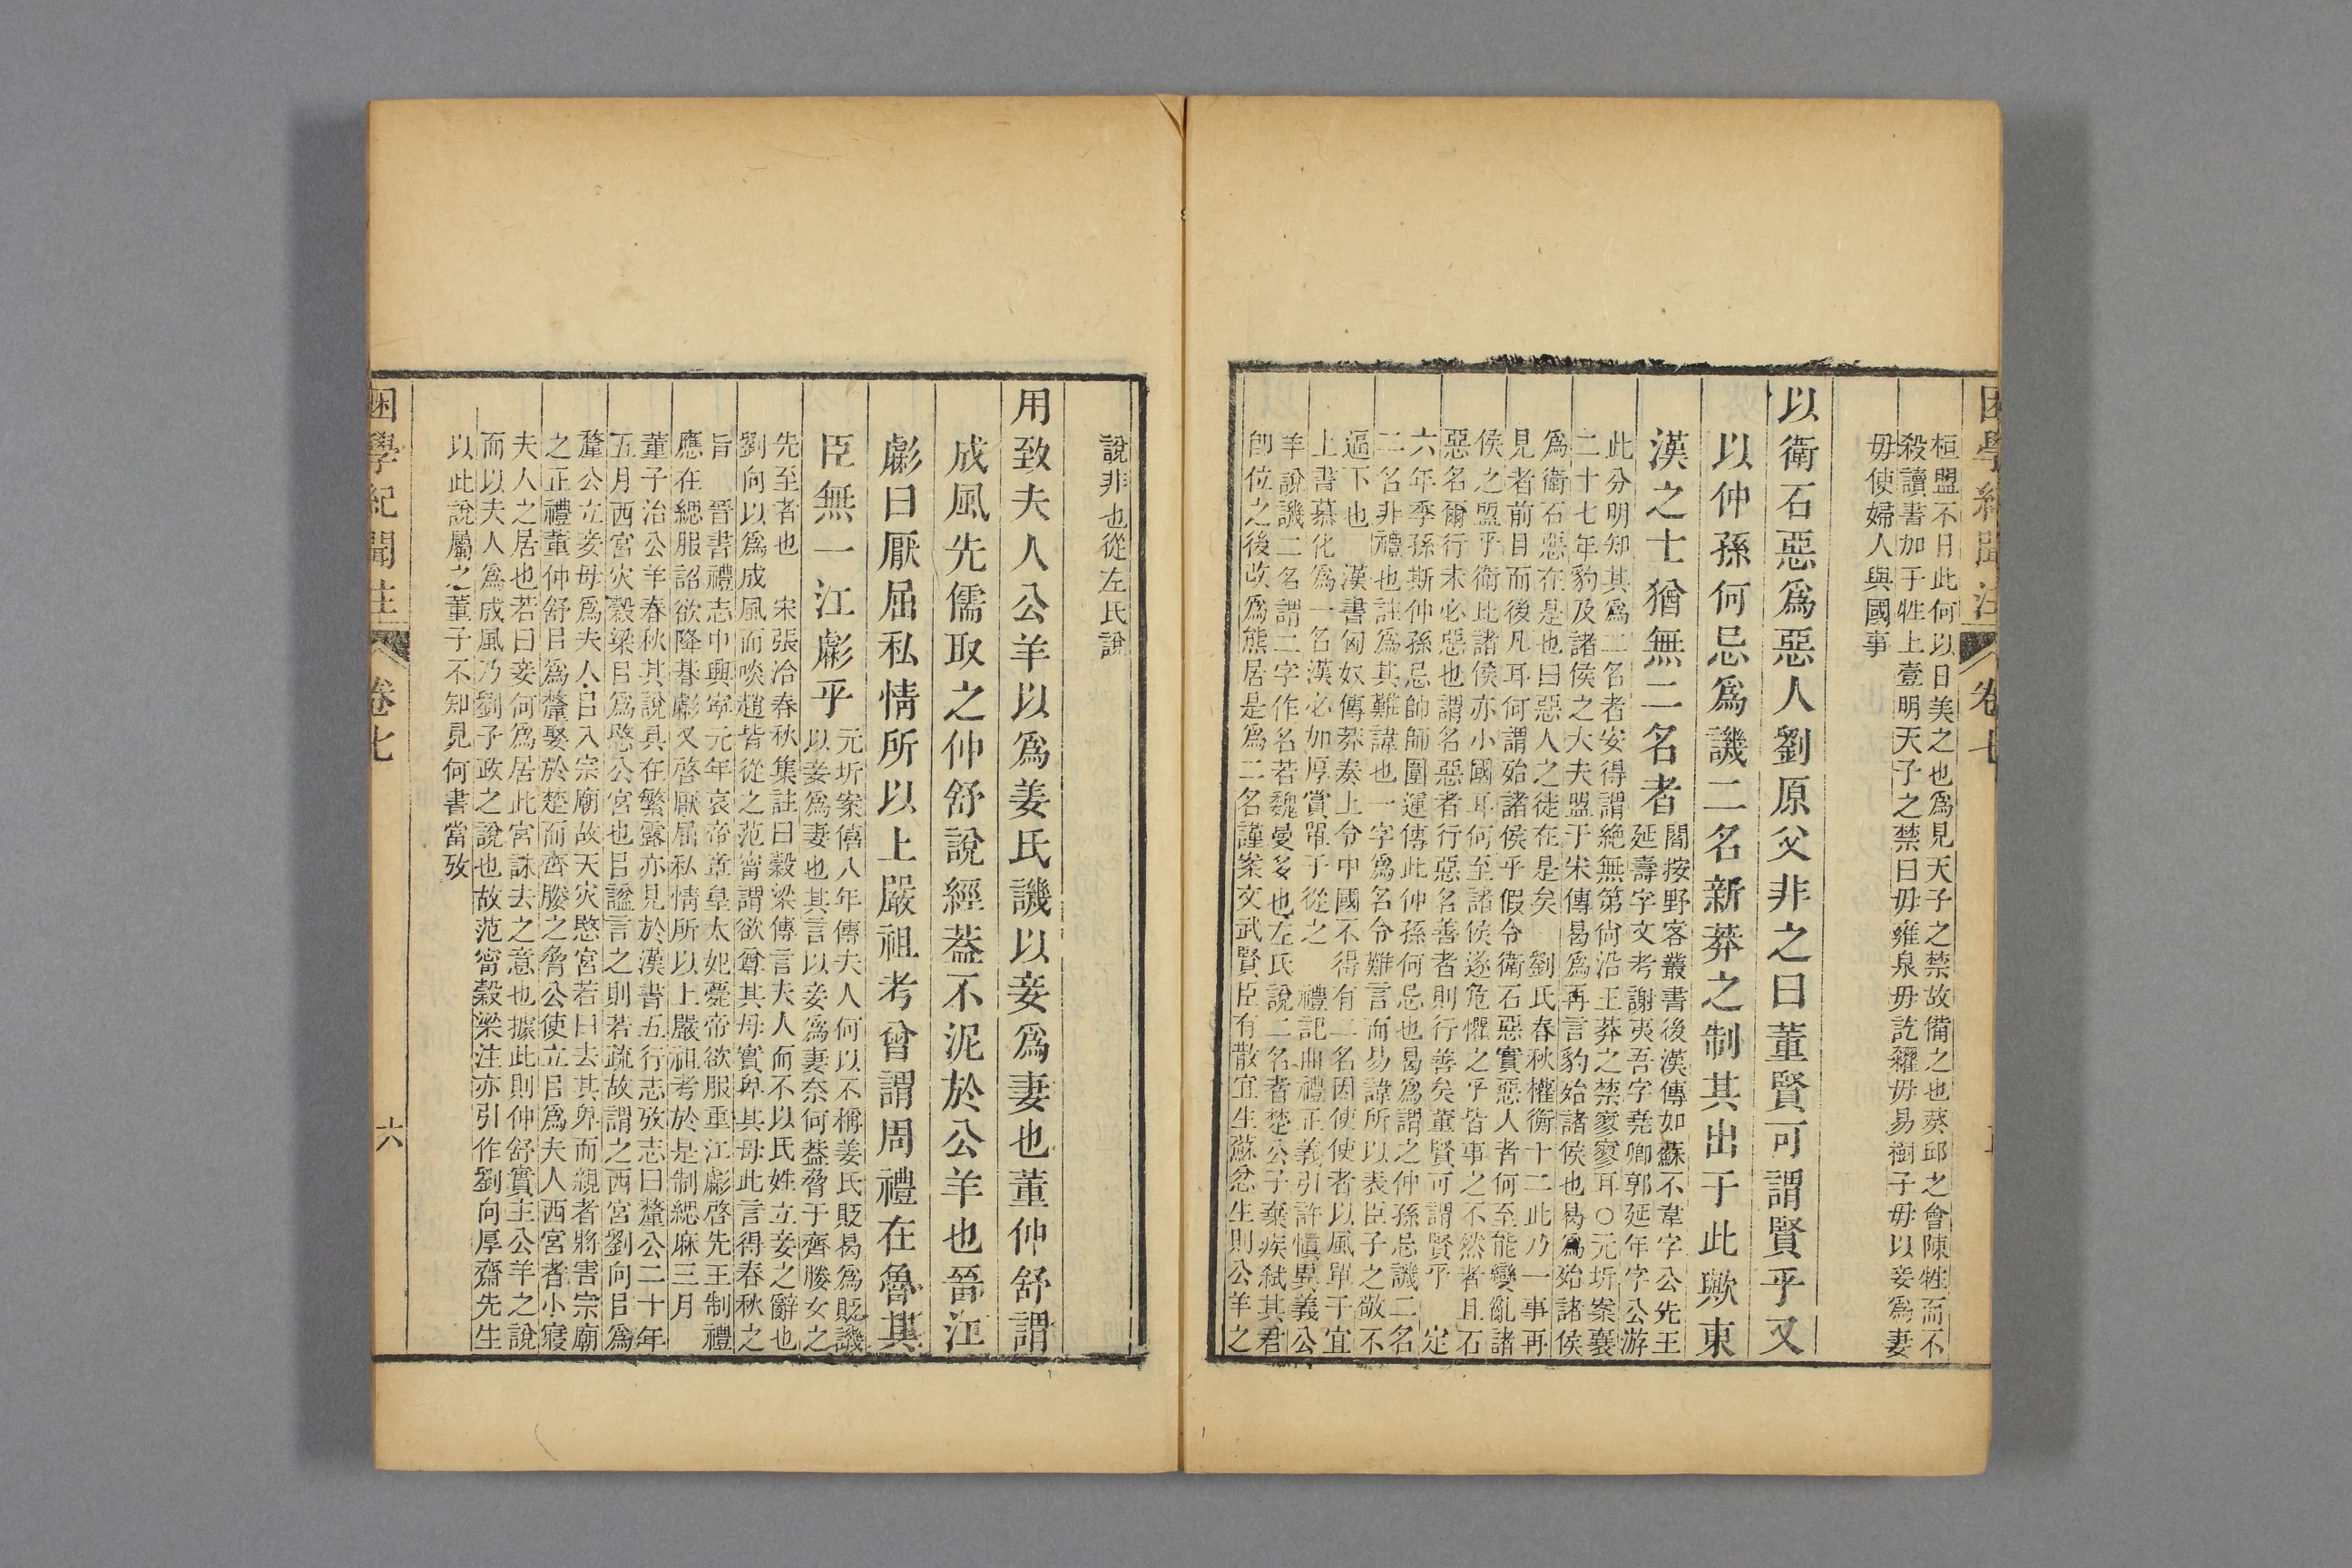 困學紀聞注 卷七
桓盟不日此何以日美之也爲見天子之禁故備之也葵邱之會陳牲而不
殺讀書加于牲上壹明天子之禁曰毋雍泉毋訖糴毋易樹子毋以妾爲妻
毋使婦人與國事
以衛石惡爲惡人劉原父非之曰董賢可謂賢乎又
以仲孫何忌爲譏二名新莽之制其出于此歟東
漢之士猶無二名者
閻按野客叢書後漢傳如蘇不韋字公先王
延壽字文考謝夷吾字堯卿郭延年字公游
此分明知其爲二名者安得謂絶無第尙沿王莽之禁寥寥耳○元圻案襄
二十七年豹及諸侯之大夫盟于宋傳曷爲再言豹始諸侯也曷爲始諸侯
爲衛石惡在是也曰惡人之徒在是矣 劉氏春秋權衡十二此乃一事再
見者前目而後凡耳何謂殆諸侯乎假令衛石惡實惡人者何至能變亂諸
侯之盟乎衛比諸侯亦小國耳何至諸侯遂危懼之乎皆事之不然者且石
惡名爾行未必惡也謂名惡者行惡名善者則行善矣董賢可謂賢乎 定
六年季孫斯仲孫忌帥師圍運傳此仲孫何忌也曷爲謂之仲孫忌譏二名
二名非禮也註爲其難諱也一字爲名令難言而易諱所以表臣子之敬不
逼下也 漢書匈奴傳莽奏上令中國不得有二名因使使者以風單于宜
上書慕化爲一名漢必加厚賞單于從之 禮記曲禮正義引許愼異義公
羊說譏二名謂二字作名若魏曼多也左氏說二名者楚公子棄疾弑其君
卽位之後改爲熊居是爲二名謹案文武賢臣有散宜生蘇忿生則公羊之
說非也從左氏說
用致夫人公羊以爲姜氏譏以妾爲妻也董仲舒謂
成風先儒取之仲舒說經葢不泥於公羊也晉江
彪曰厭屈私情所以上嚴祖考曾謂周禮在魯其
臣無一江彪乎
元圻案僖八年傳夫人何以不稱姜氏貶曷爲貶譏
以妾爲妻也其言以妾爲妻奈何葢脅于齊媵女之
先至者也 宋張洽春秋集註曰穀梁傳言夫人而不以氏姓立妾之辭也
劉向以爲成風而啖趙皆從之范甯謂欲尊其母實卑其母此言得春秋之
旨 晉書禮志中興寧元年哀帝章皇太妃薨帝欲服重江彪啓先王制禮
應在緦服詔欲降朞彪又啓厭屈私情所以上嚴祖考於是制緦麻三月
董子治公羊春秋其說具在繁露亦見於漢書五行志攷志曰釐公二十年
五月西宮灾穀梁㠯爲愍公宮也㠯諡言之則若疏故謂之西宮劉向㠯爲
釐公立妾母爲夫人㠯入宗廟故天灾愍宮若曰去其卑而親者將害宗廟
之正禮董仲舒㠯爲釐娶於楚而齊媵之脅公使立㠯爲夫人西宮者小寢
夫人之居也若曰妾何爲居此宮誅去之意也據此則仲舒實主公羊之說
而以夫人爲成風乃劉子政之說也故范甯穀梁注亦引作劉向厚齋先生
以此說屬之董子不知見何書當攷
困學紀聞注 卷七 六